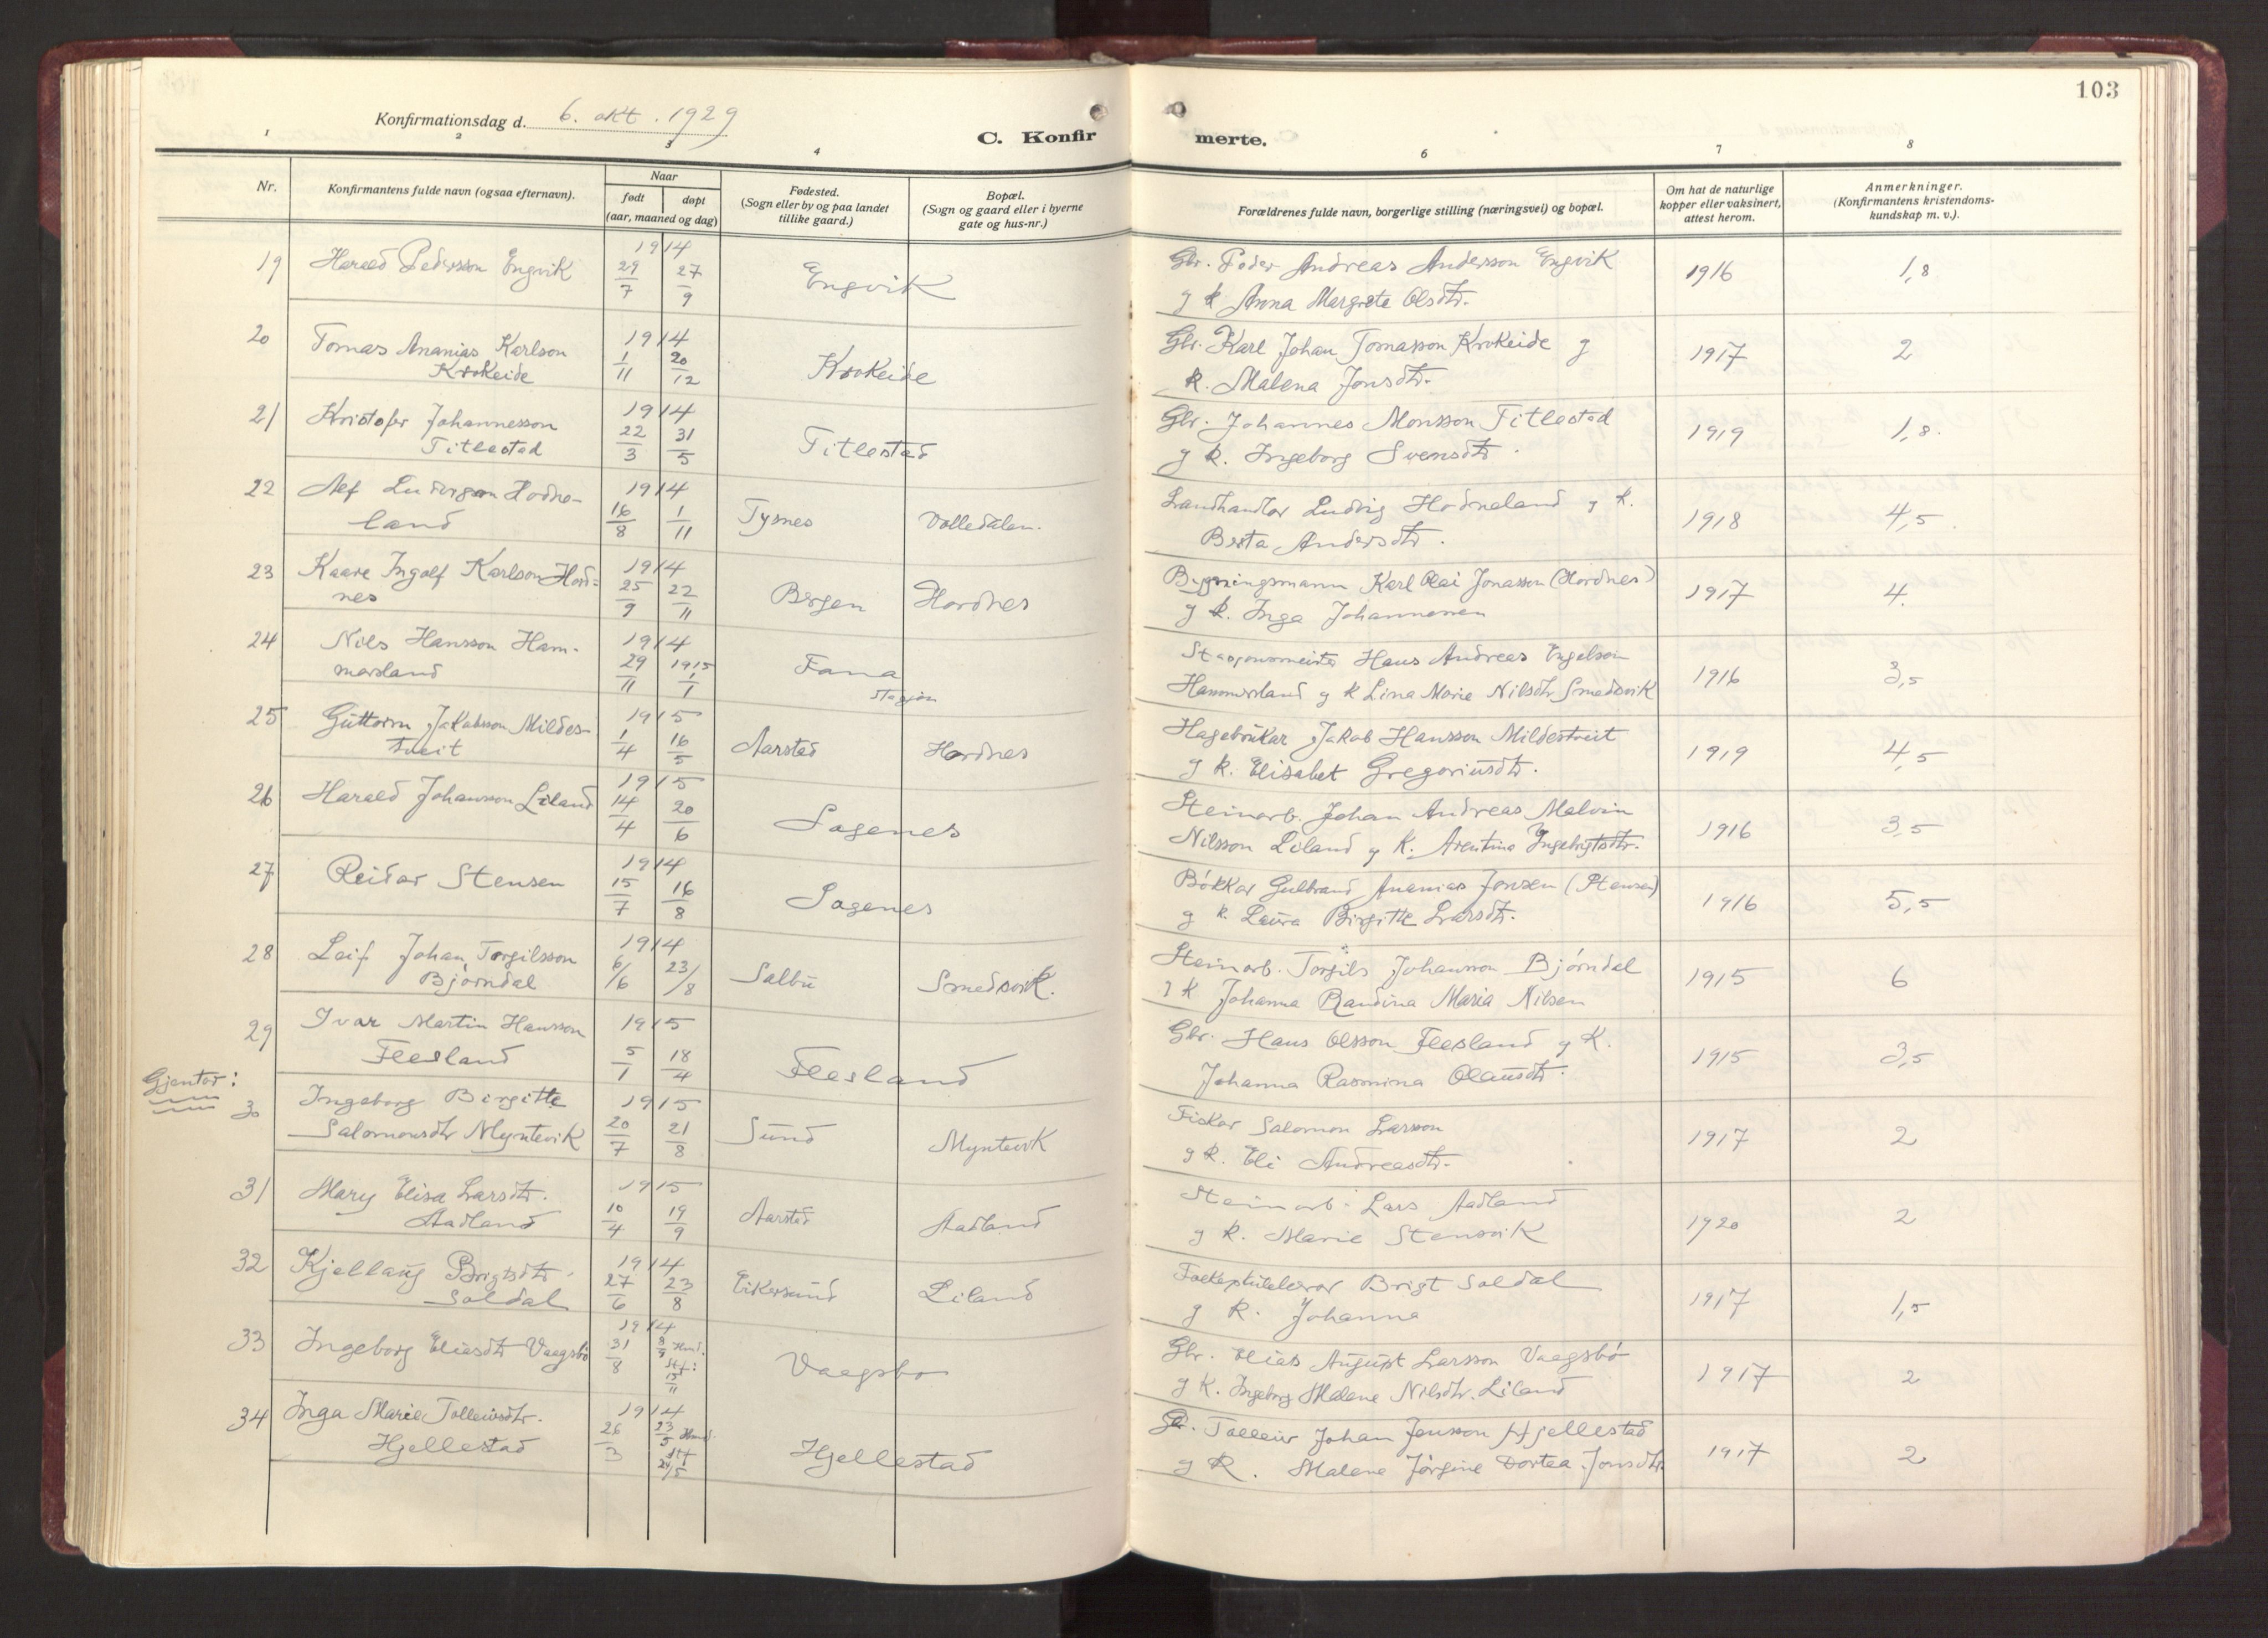 103
Konfirmationsdag d. 6. okt. 1929
C. Konfir merte.
1 2 3 4 6 7 8
Nr.
Konfirmantens fulde navn (ogsaa efternavn).
Naar
født døpt
(aar, maaned og dag)
Fødested.
(Sogn eller by og paa landet
tillike gaard.)
Bopæl.
(Sogn og gaard eller i byerne
gate og hus-nr.)
Forældrenes fulde navn, borgerlige stilling (næringsvei) og bopæl.
Om hat de naturlige
kopper eller vaksinert,
attest herom.
Anmerkninger.
(Konfirmantens kristendoms-
kundskap m. v.).
19 Harald Pedersson Engvik 1914 29/7 27/9 Engvik Gbr. Peder Andreas Andersson Engvik 1916 1,8
g k Anna Margrete Olsdtr.
20 Tomas Ananias Karlson 1914 1/11 20/12 Krokeide Gbr. Karl Johan Tomasson Krokeide g 1917 2
Krokeide k. Malena Jonsdtr.
21 Kristofer Johannesson 1914 22/3 31/5 Titlestad Gbr. Johannes Monsson Titlestad 1919 1,8.
Titlestad g k. Ingeborg Svensdtr.
22 Alf Ludvigson Hodne- 1914 16/8 1/11 Tysnes Dolledalen. Landhandlar Ludvig Hodneland g k. 1918 4,5
land Berta Andersdtr.
23 Kaare Ingolf Karlson Hord= 1914 25/9 22/11 Bergen Hordnes Bygningsmann Karl Olai Jonasson (Hordnes) 1917 4.
nes g k. Inga Johannessen
24 Nils Hansson Ham- 1914 29/11 1915 1/1 Fana stasjon Stasjonsmeister Hans Andreas Engelson 1916 3,5
marsland Hammersland g k Lina Marie Nilsdtr Smedsvik
25 Guttorm Jakobsson Mildes- 1915 1/4 16/5 Aarstad Hordnes Hagebrukar Jakob Hansson Mildestveit 1919 4,5
tveit g k. Elisabet Gregoriusdtr.
26 Harald Johansson Liland 1915 14/4 20/6 Sagenes Steinarb. Johan Andreas Malvin 1916 3,5
Nilsson Liland g k. Arentina Ingebrigtsdtr.
27 Reidar Stensen 1914 15/7 16/8 Sagenes Bökkar Gulbrand Ananias Jensen (Stensen) 1916 5,5
g k. Laura Birgitte Larsdtr.
28 Leif Johan Torgilsson 1914 6/6 23/8 Salbu Smedsvik. Steinarb. Torgils Johansson Björndal 1915 6
Björndal g k Johanna Randina Maria Nilsen
29 Ivar Martin Hansson 1915 5/1 18/4 Flesland Gbr. Hans Olsson Flesland g k. 1915 3,5
Flesland Johanna Rasmina Olausdtr.
Gjentor:
30 Ingeborg Birgitte 1915 20/7 21/8 Sund Myntevik Fiskar Salomon Larsson 1917 2
Salomonsdtr Myntevik g k. Eli Andreasdtr.
31 Mary Elisa Larsdtr. 1915 10/4 19/9 Aarstad Aadland Steinarb. Lars Aadland 1920 2
Aadland g k. Marie Stensvik
32 Kjellaug Brigtsdtr. 1914 27/6 23/8 Eikersund Liland Folkeskulelærar Brigt Soldal 1917 1,5
Soldal g k. Johanna
33 Ingeborg Eliasdtr Vaagsbö 1914 31/8 8/9 Hmd. Stf: 15/11 Vaagsbo Gbr. Elias August Larsson Vaagsbö 1917 2
g k. Ingeborg Malene Nilsdtr. Liland
34 Inga Marie Tolleivsdtr. 1914 26/3 23/5 Hmd. Stf 24/5 Hjellestad Gbr. Tolleiv Johan Jensson Hjellestad 1917 2
Hjellestad g k. Malene Jörgine Dortea Jonsdtr.